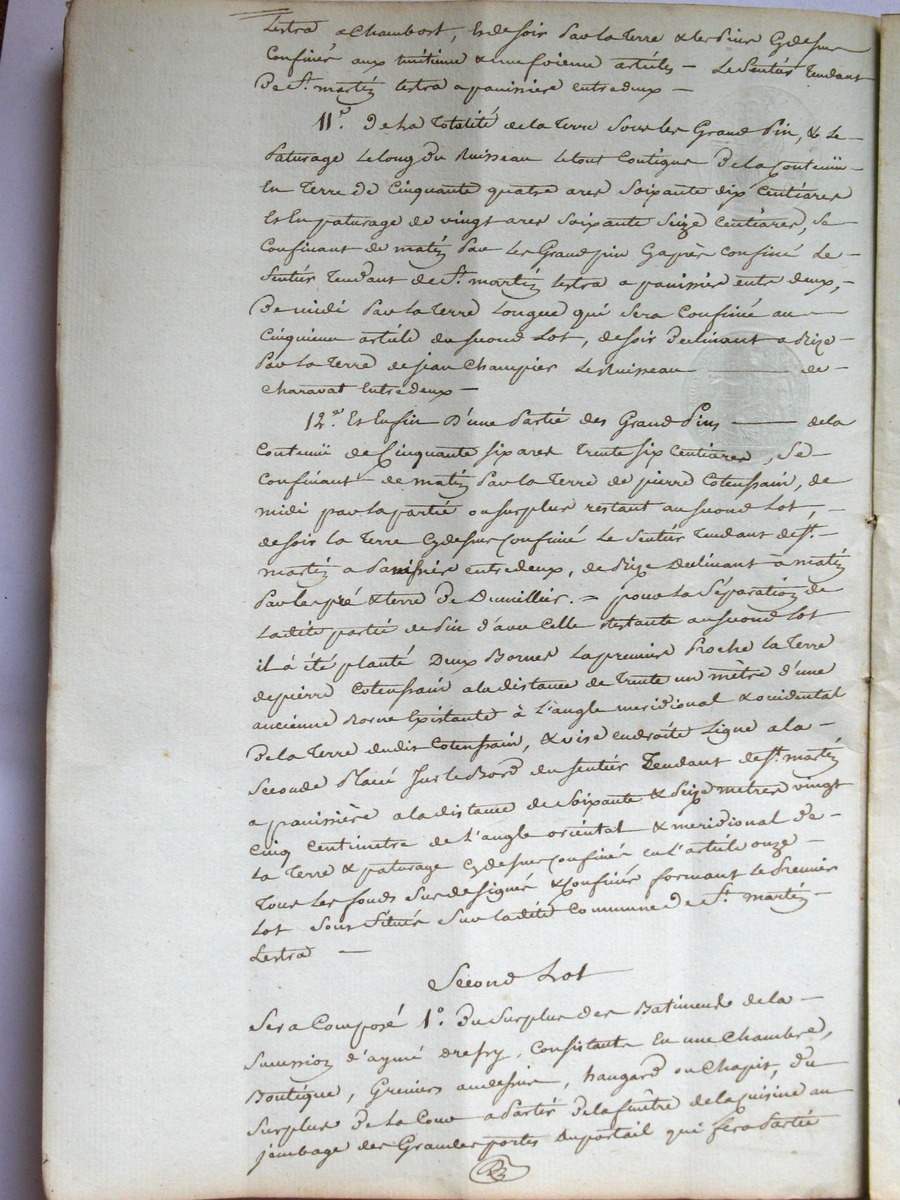 Lestra a Chambost, et de soir par la terre & les pins Cydessus
Confinés aux huitieme & neuvieme articles — Le Sentier tendant
De St. martin lestra a panissiere entredeux —
11°. De la Totalité de la terre Sous les Grand Pin, & Le
Paturage Le long du Ruisseau Le tout Contigus De la Contenüe
En Terre de Cinquante quatre ares Soixante dix Centiares
Et En paturage de vingt ares Soixante Seize Centiares, Se
Confinant de matin Par les Grand pin Cyaprès confiné Le
Sentier Tendant de St. martin lestra a panissiere entre deux,
De midi Par la Terre Longue qui Sera Confiné au
Cinquieme article du second Lot, de soir declinant a Bize
Par la Terre de jean Champier Le Ruisseau — de
Charavat Entredeux —
12°. Et Enfin D'une Partie des Grand Pins — de la
Contenüe de Cinquante six ares trente six Centiares, Se
Confinant de matin Par la Terre de pierre Cotenssain, de
midi par la partie ou surplus restant au second Lot,
de soir la Terre Cydessus Confiné Le Sentier Tendant de St.
martin a Panissiere entredeux, de Bize Declinant à matin
Par les pré & terre De Dumillier. = pour la Séparation de
Ladite partie de Pin d'avec Celle restante au second Lot
il à été planté Deux Bornes La premiere Proche la Terre
de pierre Cotenssain a la distance de Trente un mètre d'une
ancienne Borne Existante à L'angle meridional & occidental
De la Terre dudit Cotenssain, & vise en droite Ligne a la
Seconde Placé Sur le Bord du sentier Tendant de St. martin
a panissière a la distance de Soixante & Seize mètres vingt
Cinq Centimetre de L'angle oriental & meridional de
La Terre & paturage Cydessus Confinés en L'article onze
Tous les fonds Susdesignés & Confinés formant le Premier
Lot Sont Situés Sur ladite Commune De St. martin
Lestra —
Second Lot
Sera Composé 1°. Du Surplus des Batiments de la
Succession d'aymé drefry, Consistants En une Chambre,
Boutique, Greniers audessus, hangard ou Chapit, du
Surplus De La Cour a Partir De la fenêtre de la Cuisine au
jambage des Grandes portes du portail qui fera Partie